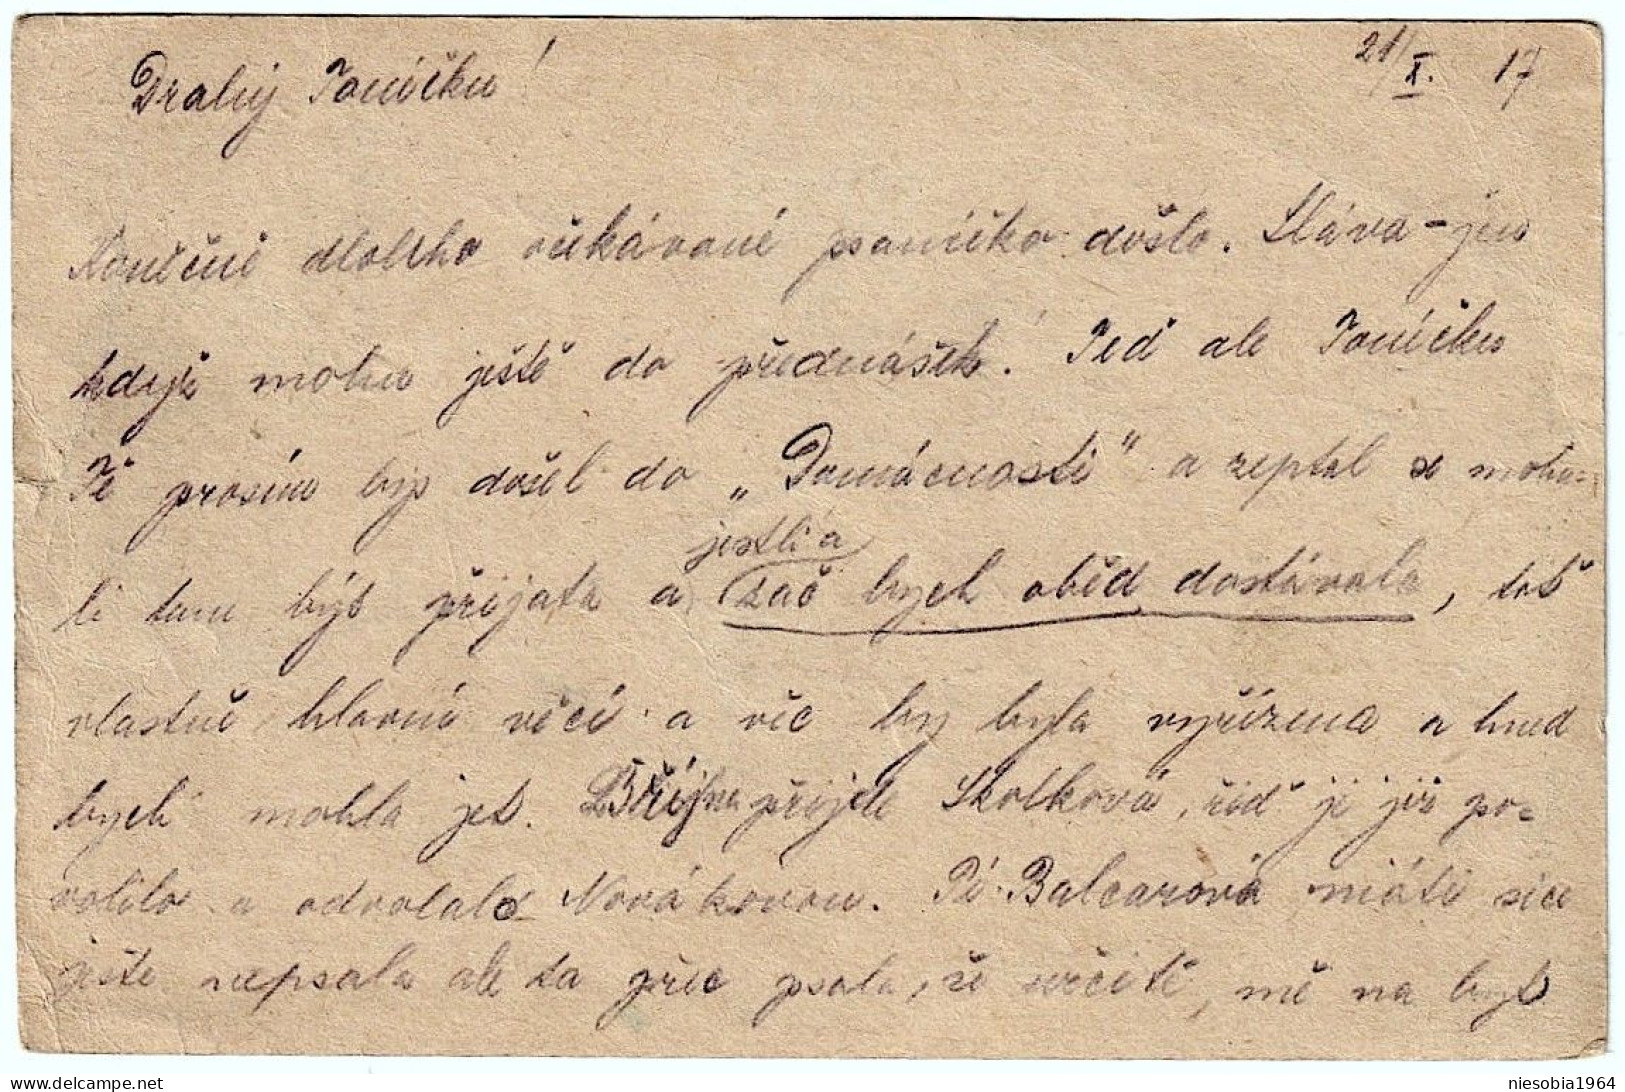 21/X. 17
Drahý Toníčku!
Konečně dlouho očekávané psaníčko došlo. Sláva - jen
když mohu ještě do přednášek! Teď ale Toníčku
Tě prosím bys došel do „Domácnosti" a zeptal se mohu-
li tam být přijata a jestli a zač bych oběd dostávala, toť
vlastně hlavní věcí a věc by byla vyřízena a hned
bych mohla jet. 25 října přijede Skolková, řid. ji již po-
volilo a odvolalo Novákovou. Pí. Balcarová máti sice
ještě nepsala ale ta přec psala, že určitě, mě na byt
niesobia1964